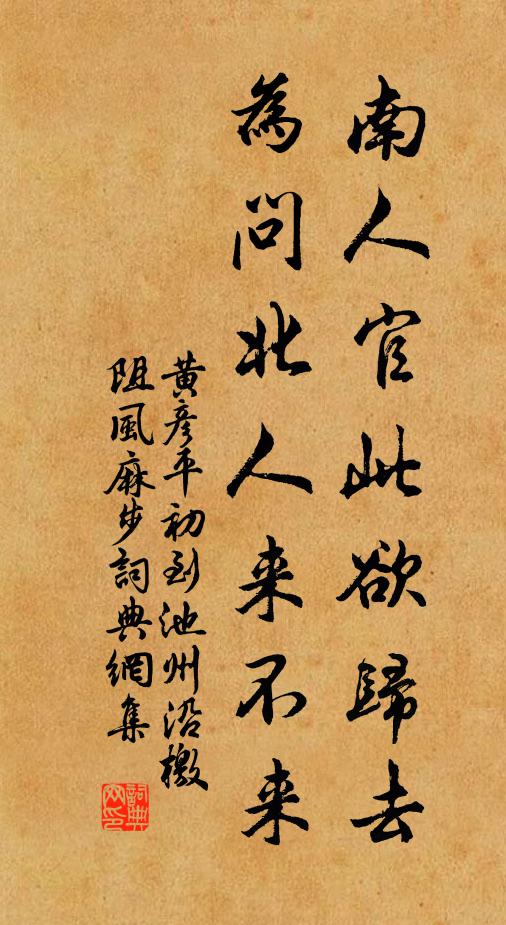 南人官此欲歸去
為問北人来不来
黄彦平初到池州沿檄
阻風麻步詞典網集
詞典網印